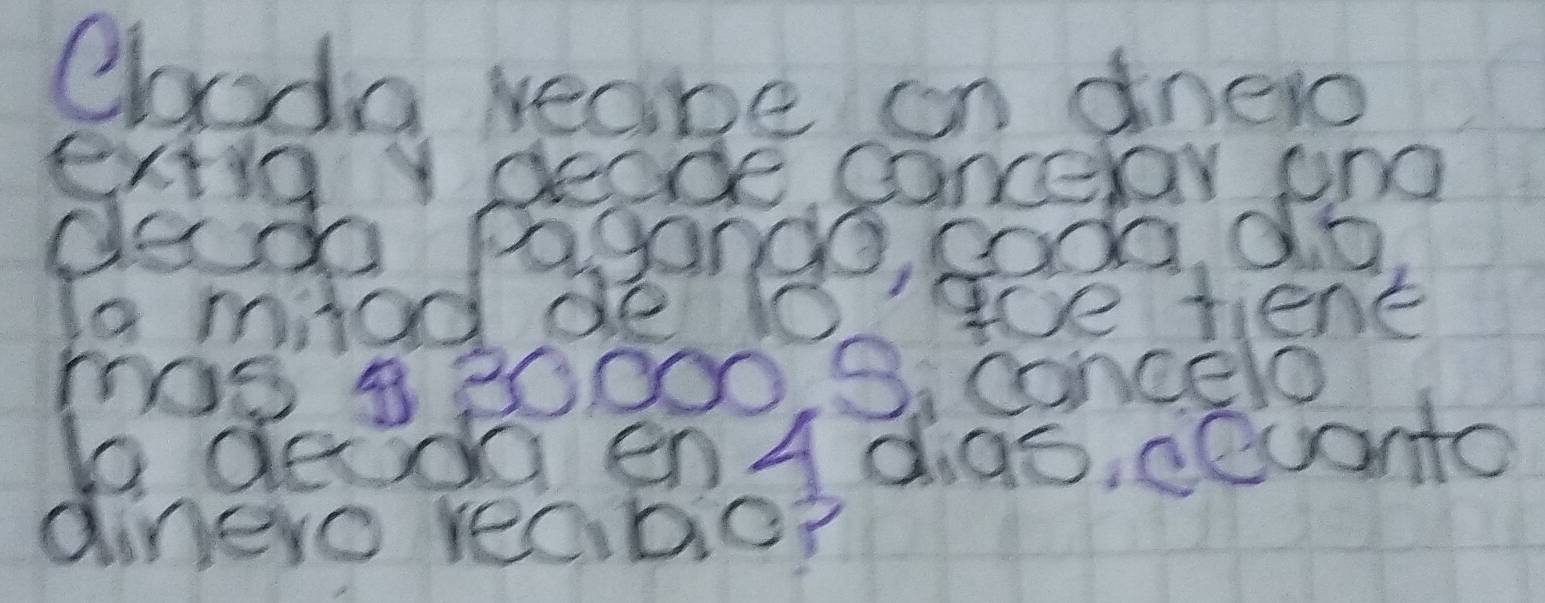 Claudia recibe un dinero
extra y decide cancelar una
deuda pagando, cada dia,
la mitad de lo que tiene
mas $ 20.000 Si cancelo
la deuda en 4 dias. ¿Cuanto
dinero recibio?